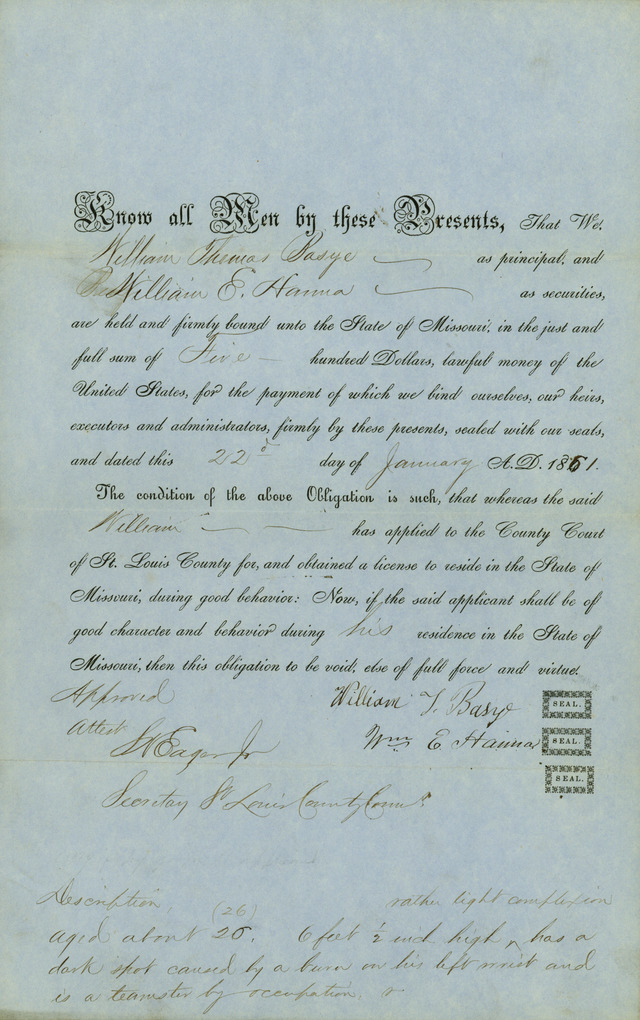 Know all Men by these Presents, That We,
William Thomas Basye as principal, and
William E. Hanna as securities,
are held and firmly bound unto the State of Missouri, in the just and
full sum of Five hundred Dollars, lawful money of the
United States, for the payment of which we bind ourselves, our heirs,
executors and administrators, firmly by these presents, sealed with our seals,
and dated this 22d day of January A.D. 1861.
The condition of the above Obligation is such, that whereas the said
William has applied to the County Court
of St. Louis County for, and obtained a license to reside in the State of
Missouri, during good behavior: Now, if the said applicant shall be of
good character and behavior during his residence in the State of
Missouri, then this obligation to be void, else of full force and virtue.
Approved William T. Basye SEAL.
Attest Wm E. Hanna SEAL.
Eager Jr SEAL.
Secretary St Louis County
Description, rather light complexion
(26)
aged about 26. 6 feet ½ inch high ^ has a
dark spot caused by a burn on his left wrist and
is a teamster by occupation.